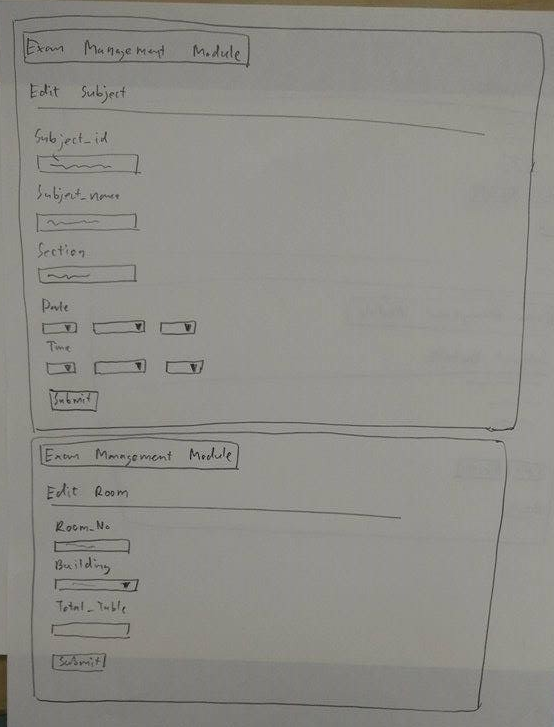 Exam Management Module
Edit Subject
Subject_id
Subject_name
Section
Date
Time
Submit
Exam Management Module
Edit Room
Room_No
Building
Total_Table
Submit